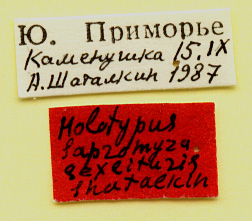 Ю. Приморье
Каменушка 15.IX
А.Шаталкин 1987
Holotypus
Sapromyza
sexciturig
Shatalkin